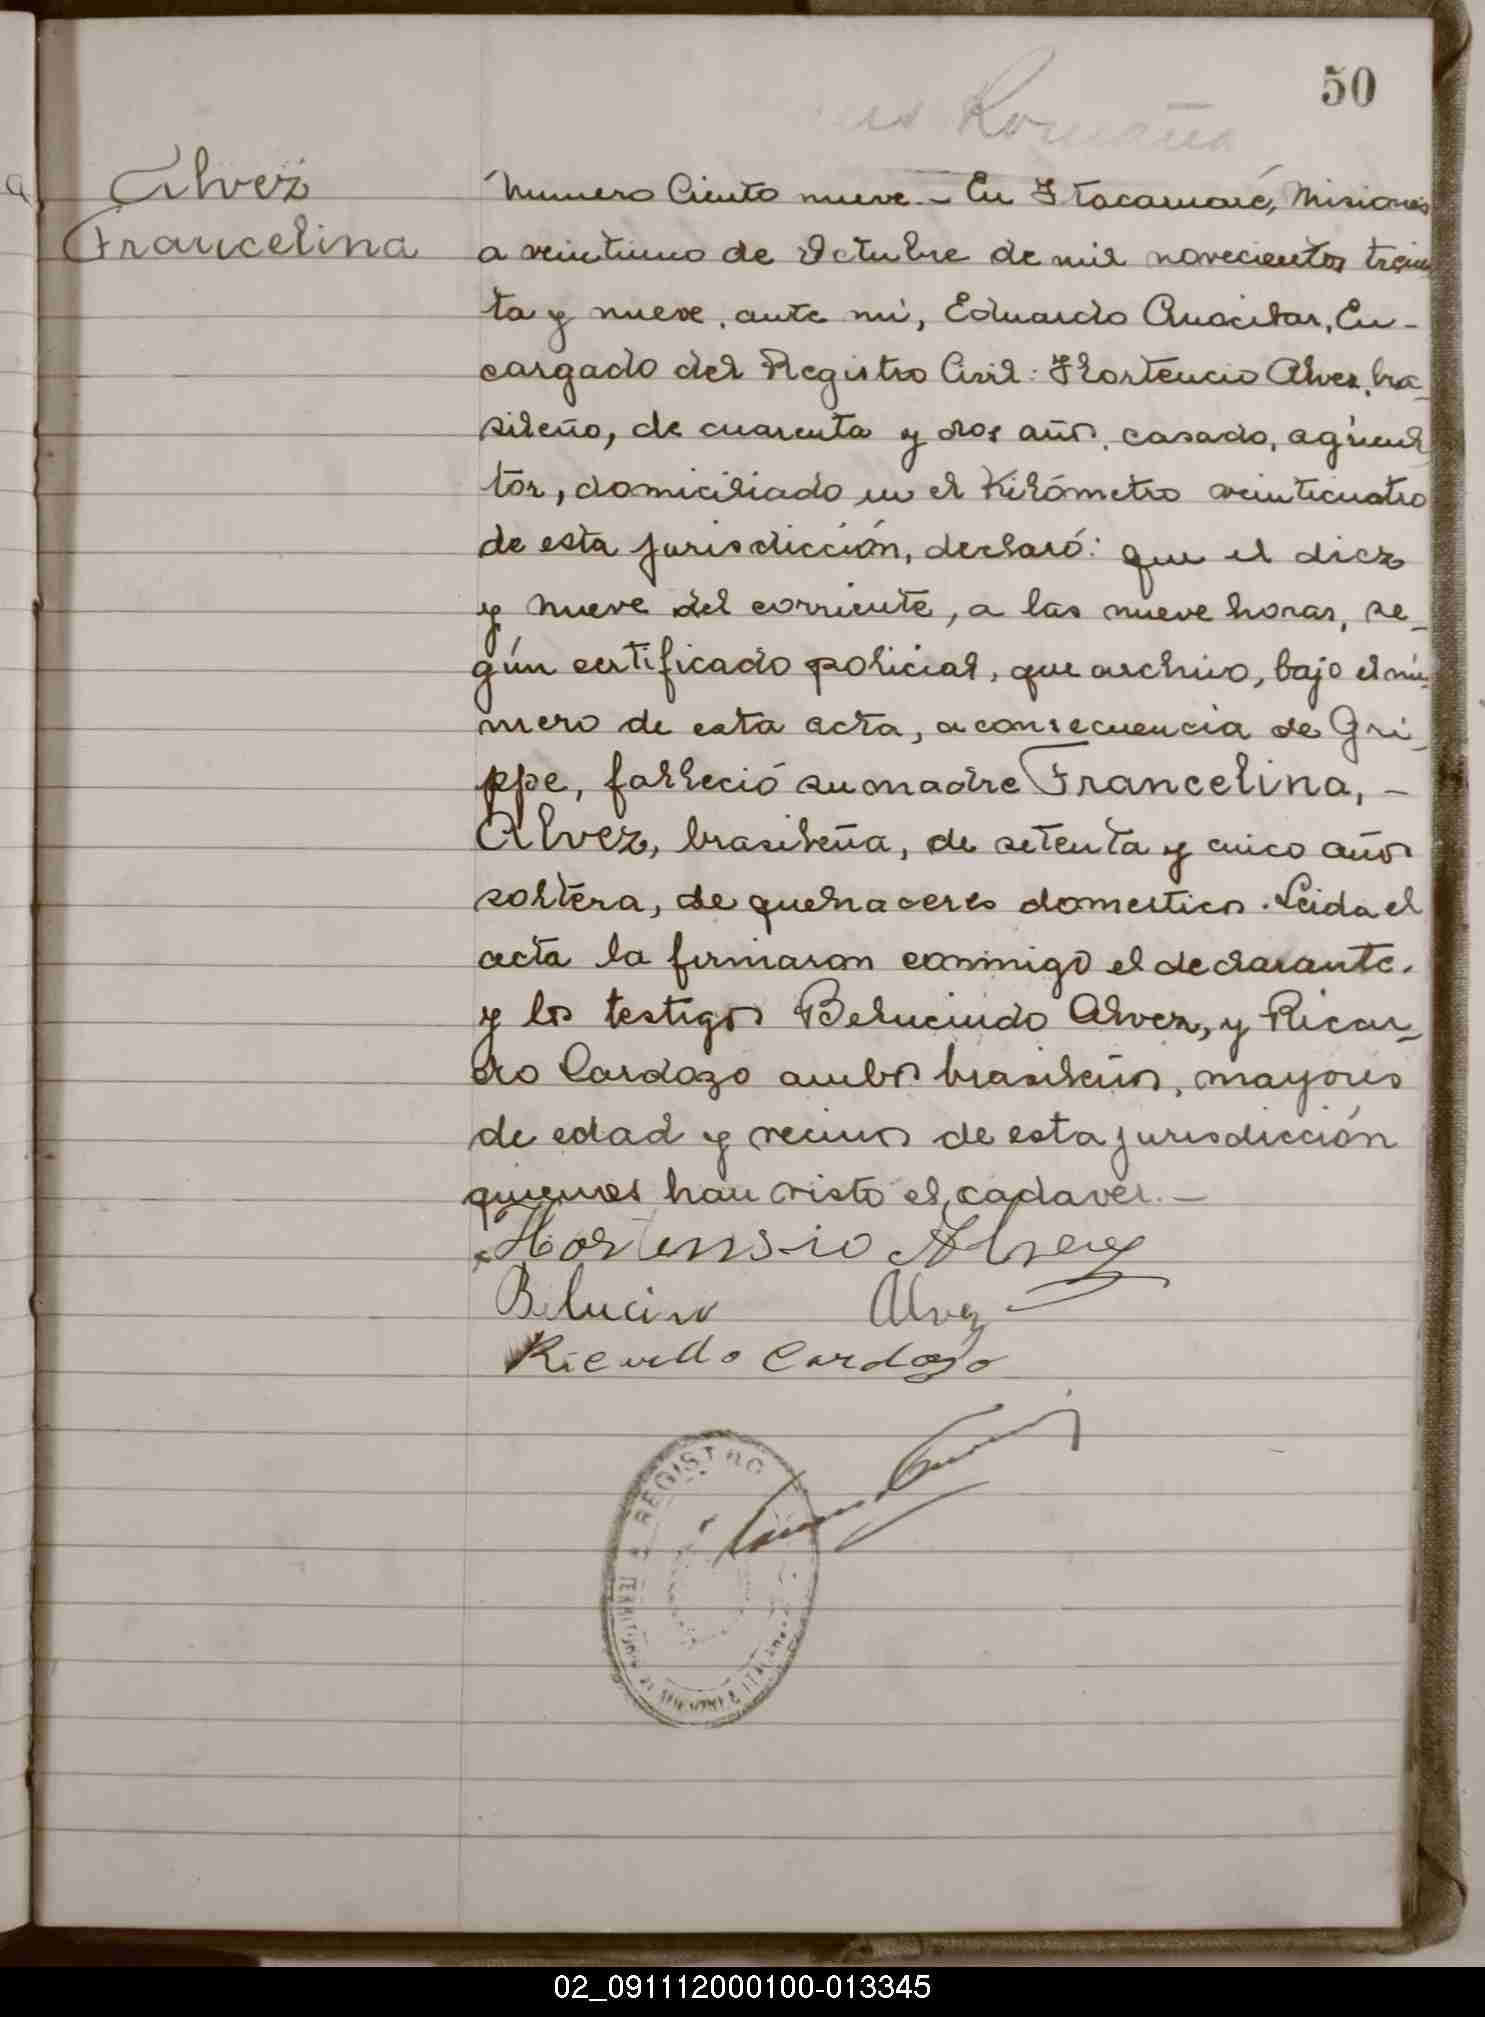 50
Romaña
Alvez
Francelina
Numero Ciento nueve. - En Itacaruaré, Misiones
a veintiuno de Octubre de mil novecientos trein
ta y nueve, ante mi, Eduardo En-
cargado del Registro Civil: Hortencio Alvez, bra-
sileño, de cuarenta y dos años, casado, agricul
tor, domiciliado en el Kilómetro veinticuatro
de esta jurisdicción, declaró: que el diez
y nueve del corriente, a las nueve horas, se-
gún certificado policial, que archivo, bajo el nú-
mero de esta acta, a consecuencia de Gri-
ppe, falleció su madre Francelina, -
Alvez, brasileña, de setenta y cinco años
soltera, de quehaceres domesticos. Leida el
acta la firmaron conmigo el declarante.
y los testigos Belucindo Alvez, y Ricar-
do Cardozo ambos brasileños, mayores
de edad y vecinos de esta jurisdicción
quienes han visto el cadaver. -
Hortensio Alvez
Belucino Alvez
Ricardo Cardozo
REGISTRO
02_091112000100-013345